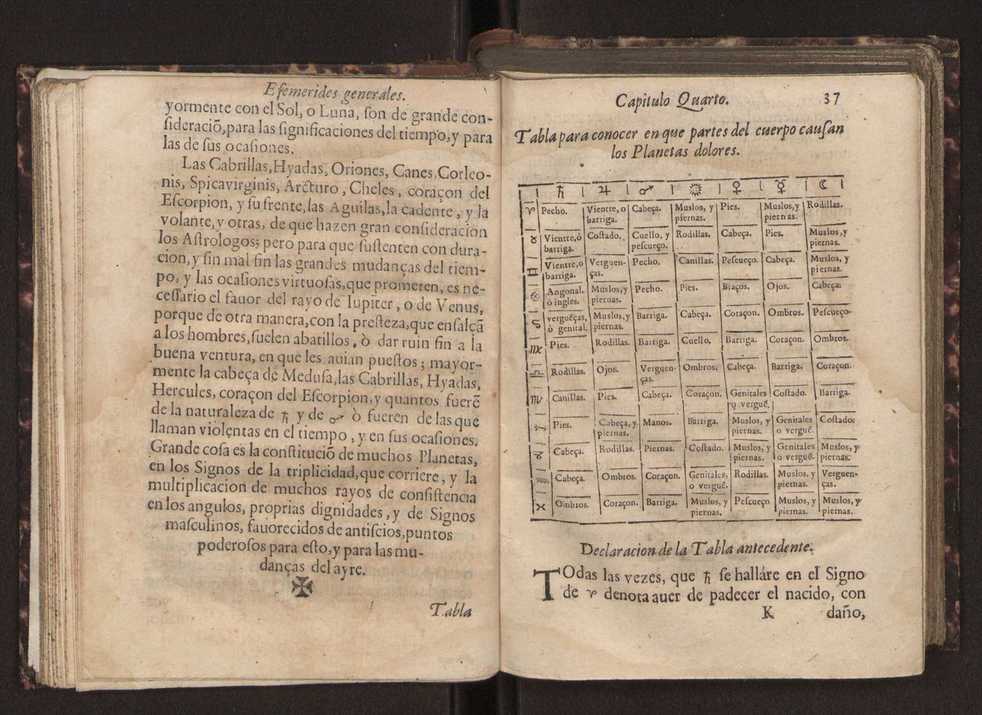 Efemerides generales.
yormente con el Sol, o Luna, son de grande con-
sideraciõ, para las significaciones del tiempo, y para
las de sus ocasiones.
Las Cabrillas, Hyadas, Oriones, Canes, Corleo-
nis, Spicavirginis, Arcturo, Cheles, coraçon del
Escorpion, y su frente, las Aguilas, la cadente, y la
volante, y otras, de que hazen gran consideración
los Astrologos; pero para que sustenten con dura-
cion, y sin mal fin las grandes mudanças del tiem-
po, y las ocasiones virtuosas, que prometen, es ne-
cessario el fauor del rayo de Iupiter, o de Venus,
porque de otra manera, con la presteza, que ensalçã
a los hombres, suelen abatillos, ò dar ruin fin a la
buena ventura, en que les auian puestos; mayor-
mente la cabeça de Medusa, las Cabrillas, Hyadas,
Hercules, coraçon del Escorpion, y quantos fuerẽ
de la naturaleza de ♄ y de ♂ ò fueren de las que
llaman violentas en el tiempo, y en sus ocasiones.
Grande cosa es la constitució de muchos Planetas,
en los Signos de la triplicidad, que corriere, y la
multiplicacion de muchos rayos de consistencia
en los angulos, proprias dignidades, y de Signos
masculinos, fauorecidos de antiscios, puntos
poderosos para esto, y para las mu-
danças del ayre.
✠
Tabla
Capitulo Quarto. 37
Tabla para conocer en que partes del cuerpo causan
los Planetas dolores.
♄ ♃ ♂ ☼ ♀ ☿ ☾
♈ Pecho. Vientre, o barriga. Cabeça. Muslos, y piernas. Pies. Muslos, y piernas. Rodillas.
♉ Vientre, ò barriga. Costado. Cuello, y pescueço. Rodillas. Cabeça. Pies. Muslos, y piernas.
♊ Vientre, o barriga. Verguenças. Pecho. Canillas. Pescueço. Cabeça. Muslos, y piernas.
♋ Angonal. ò ingles. Muslos, y piernas. Pecho. Pies. Braços. Ojos. Cabeça.
♌ vergueças, ò genital. Muslos, y piernas. Barriga. Cabeça. Coraçon. Ombros. Pescueço.
♍ Pies. Rodillas. Barriga. Cuello. Barriga. Coraçon. Ombros.
♎ Rodillas. Ojos. Verguenças. Ombros. Cabeça. Barriga. Coraçon.
♏ Canillas. Pies. Cabeça. Coraçon. Genitales o verguẽ. Costado. Barriga.
♐ Pies. Cabeça, y piernas. Manos. Barriga. Muslos, y piernas. Genitales o verguẽ. Costado.
♑ Cabeça. Rodillas. Piernas. Costado. Muslos, y piernas. Genitales o verguẽ. Muslos, y piernas.
♒ Cabeça. Ombros. Coraçon. Genitales, o verguẽ. Rodillas. Muslos, y piernas. Verguenças.
♓ Ombros. Coraçon. Barriga. Muslos, y piernas. Pescueço Muslos, y piernas. Muslos, y piernas.
Declaracion de la Tabla antecedente.
TOdas las vezes, que ♄ se halláre en el Signo
de ♈ denota auer de padecer el nacido, con
K daño,